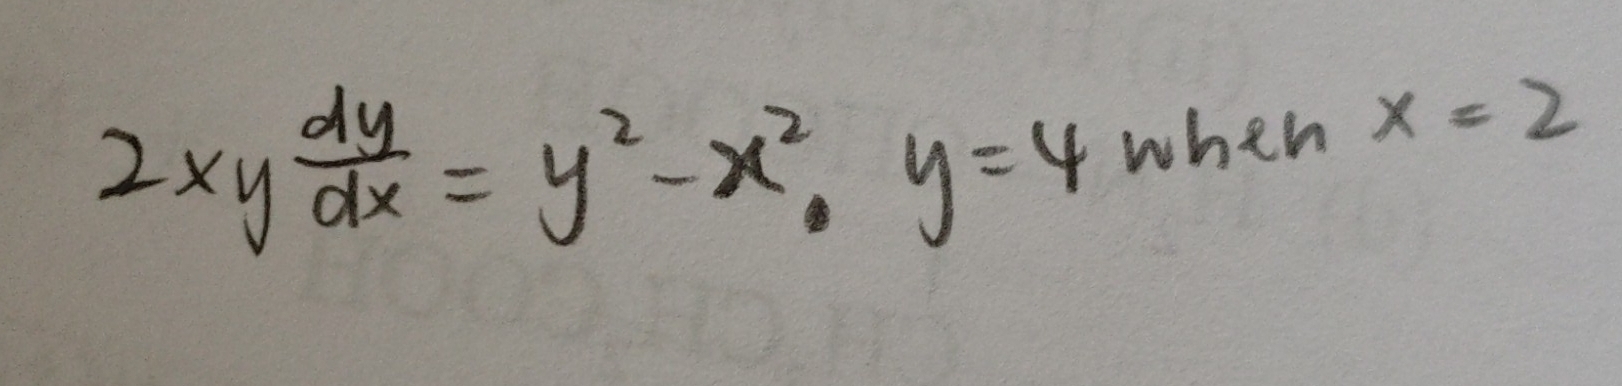 2xy dy/dx = y² - x². y = 4 when x = 2